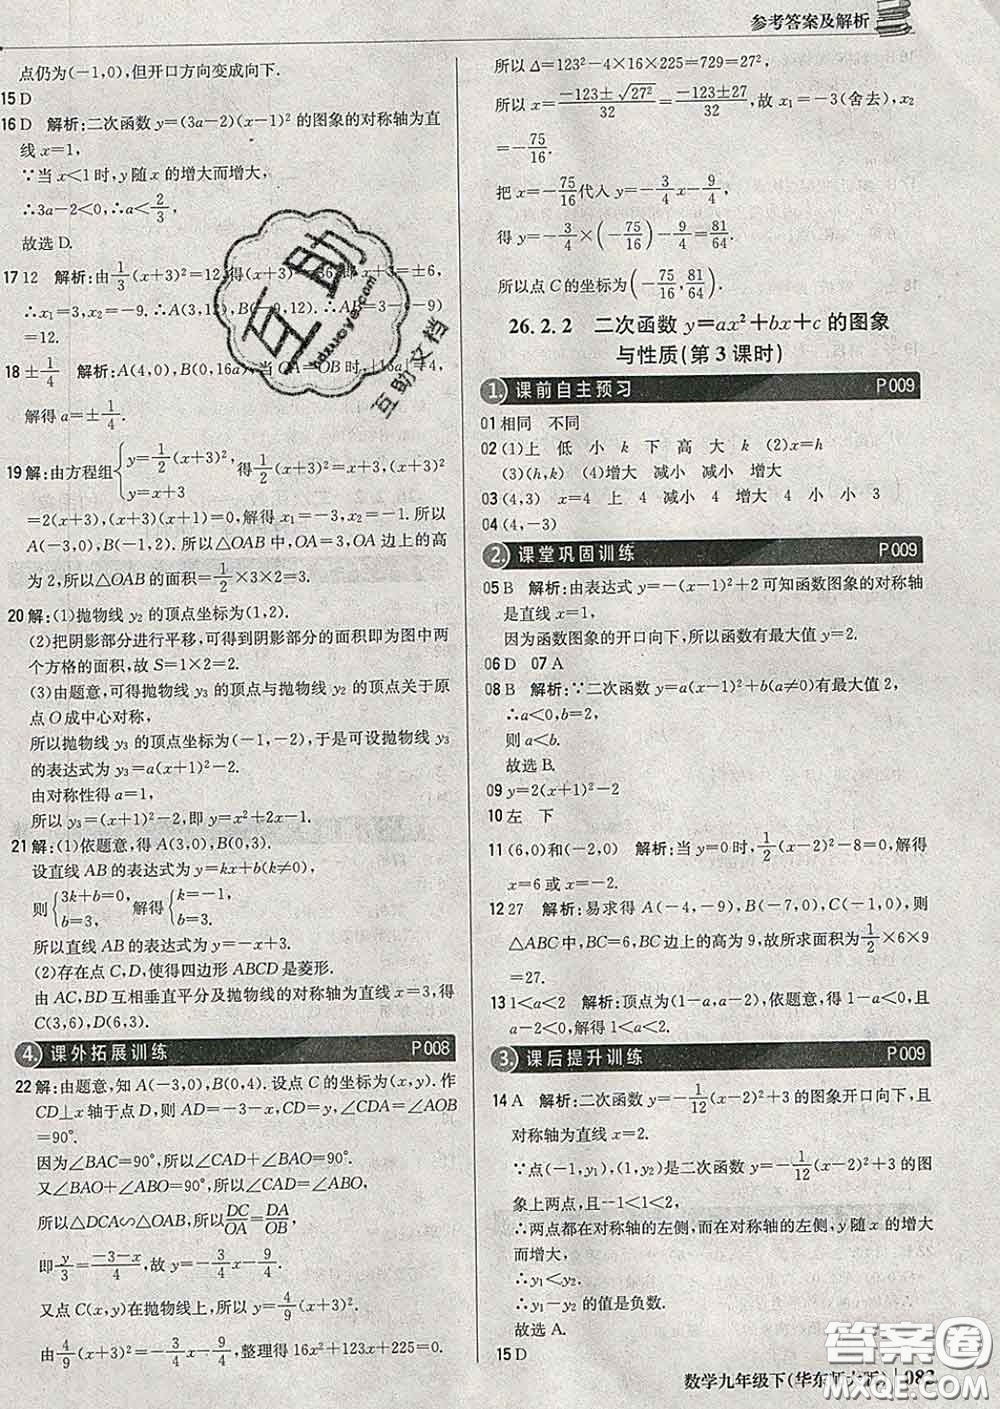 参考答案及解析
点仍为(-1,0),但开口方向变成向下.
15 D
16 D 解析:二次函数 y=(3a-2)(x-1)² 的图象的对称轴为直
线 x=1,
∵当 x<1 时,y 随 x 的增大而增大,
∴3a-2<0,∴a<2/3,
故选 D.
17 12 解析:由 1/3(x+3)²=12,得(x+3)²=36,即 x+3=±6,
∴x₁=3,x₂=-9,∴A(3,12),B(-9,12).∴AB=3-(-9)
=12.
18 ±1/4 解析:A(4,0),B(0,16a),当 OA=OB 时,|16a|=4,
解得 a=±1/4.
19 解:由方程组{y=1/2(x+3)², y=x+3 得 1/2(x+3)²=x+3,(x+3)²
=2(x+3),(x+3)(x+1)=0,解得 x₁=-3,x₂=-1.所以
A(-3,0),B(-1,2).所以△OAB 中,OA=3,OA边上的高
为 2,所以△OAB 的面积=1/2×3×2=3.
20 解:(1)抛物线 y₂ 的顶点坐标为(1,2).
(2)把阴影部分进行平移,可得到阴影部分的面积即为图中两
个方格的面积,故 S=1×2=2.
(3)由题意,可得抛物线 y₃ 的顶点与抛物线 y₂ 的顶点关于原
点 O 成中心对称,
所以抛物线 y₃ 的顶点坐标为(-1,-2),于是可设抛物线 y₃
的表达式为 y₃=a(x+1)²-2.
由对称性得 a=1,
所以 y₃=(x+1)²-2.
21 解:(1)依题意,得 A(3,0),B(0,3).
设直线 AB 的表达式为 y=kx+b(k≠0),
则{3k+b=0, b=3, 解得{k=-1, b=3.
所以直线 AB 的表达式为 y=-x+3.
(2)存在点 C,D,使得四边形 ABCD 是菱形.
由 AC,BD 互相垂直平分及抛物线的对称轴为直线 x=3,得
C(3,6),D(6,3).
4. 课外拓展训练 P008
22 解:由题意,知 A(-3,0),B(0,4).设点 C 的坐标为(x,y).作
CD⊥x 轴于点 D,则 AD=-3-x,CD=y,∠CDA=∠AOB
=90°.
因为∠BAC=90°,所以∠CAD+∠BAO=90°.
又∠BAO+∠ABO=90°,所以∠CAD=∠ABO,
所以△DCA∽△OAB,所以 DC/OA=DA/OB,
即 y/3=(-3-x)/4,所以 y=-3/4x-9/4.
又点 C(x,y)在抛物线上,所以 y=4/9(x+3)².
由 4/9(x+3)²=-3/4x-9/4,整理得 16x²+123x+225=0.
所以 Δ=123²-4×16×225=729=27²,
所以 x=(-123±√27²)/32=(-123±27)/32,故 x₁=-3(舍去),x₂
=-75/16.
把 x=-75/16 代入 y=-3/4x-9/4,
得 y=-3/4×(-75/16)-9/4=81/64.
所以点 C 的坐标为(-75/16,81/64).
26.2.2 二次函数 y=ax²+bx+c 的图象
与性质(第 3 课时)
1. 课前自主预习 P009
01 相同 不同
02 (1)上 低 小 k 下 高 大 k (2)x=h
(3)(h,k) (4)增大 减小 减小 增大
03 (4,3) x=4 上 4 减小 4 增大 4 小 小 3
04 (4,-3)
2. 课堂巩固训练 P009
05 B 解析:由表达式 y=-(x-1)²+2 可知函数图象的对称轴
是直线 x=1,
因为函数图象的开口向下,所以函数有最大值 y=2.
06 D 07 A
08 B 解析:∵二次函数 y=a(x-1)²+b(a≠0)有最大值 2,
∴a<0,b=2,
则 a<b.
故选 B.
09 y=2(x+2)²-2
10 左 下
11 (6,0)和(-2,0) 解析:当 y=0 时,1/2(x-2)²-8=0,解得
x=6 或 x=-2.
12 27 解析:易求得 A(-4,-9),B(-7,0),C(-1,0),则
△ABC 中,BC=6,BC 边上的高为 9,故所求面积为 1/2×6×9
=27.
13 1<a<2 解析:顶点为(1-a,a-2),依题意,得 1-a<0,且
a-2<0,解得 1<a<2.
3. 课后提升训练 P009
14 A 解析:二次函数 y=-1/12(x-2)²+3 的图象开口向下,且
对称轴为直线 x=2.
∵点(-1,y₁),(1,y₂)是二次函数 y=-1/12(x-2)²+3 的图
象上两点,且-1<1<2,
∴两点都在对称轴的左侧,而在对称轴的左侧,y 随 x 的增大
而增大,
∴y₁<y₂.
∴y₁-y₂ 的值是负数.
故选 A.
15 D
数学九年级下(华东师大版) 082
互助
hdzuoye.com
互助文档
答案圈
MXQE.COM